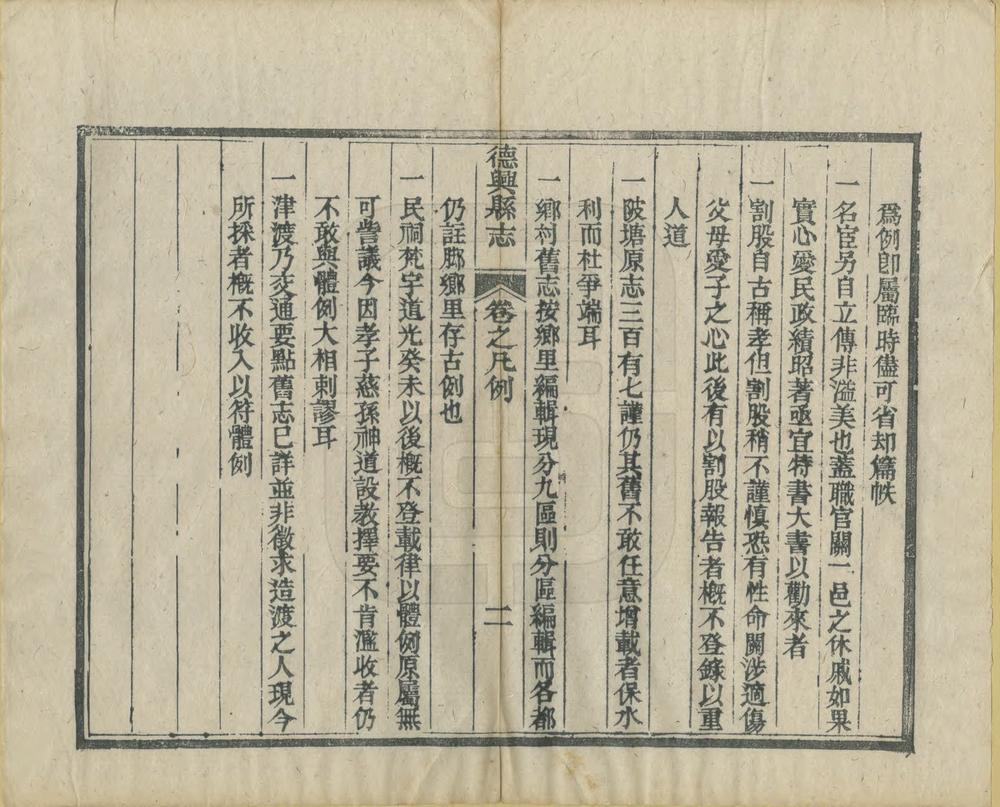 爲例卽屬臨時儘可省却篇帙
一名宦另自立傳非溢美也蓋職官關一邑之休戚如果
實心愛民政績昭著亟宜特書大書以勸來者
一割股自古稱孝但割股稍不謹慎恐有性命關涉適傷
父母愛子之心此後有以割股報告者槪不登錄以重
人道
一陂塘原志三百有七謹仍其舊不敢任意增載者保水
利而杜爭端耳
一鄉村舊志按鄉里編輯現分九區則分區編輯而各都
德興縣志 卷之凡例 二
仍註郞鄉里存古例也
一民祠梵宇道光癸未以後槪不登載律以體例原屬無
可訾議今因孝子慈孫神道設教擇要不肯濫收者仍
不敢與體例大相剌謬耳
一津渡乃交通要點舊志已詳並非徵求造渡之人現今
所採者槪不收入以符體例